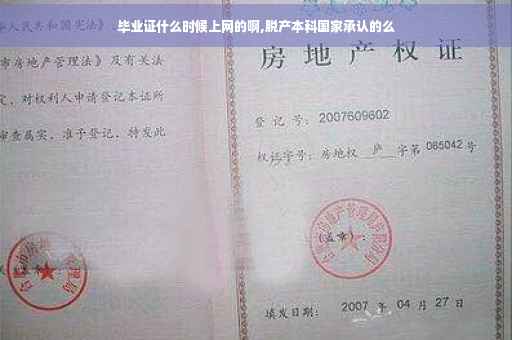 毕业证什么时候上网的啊,脱产本科国家承认的么
人民共和国宪法》及
市房地产管理法》及有关法
定，对权利人申请登记本证所
审查属实，准予登记，特发此
房地产权证
登记号：2007609602
权证字号：房地权 庐 字第 065042 号
(盖章)：
填发日期：2007 年 04 月 27 日